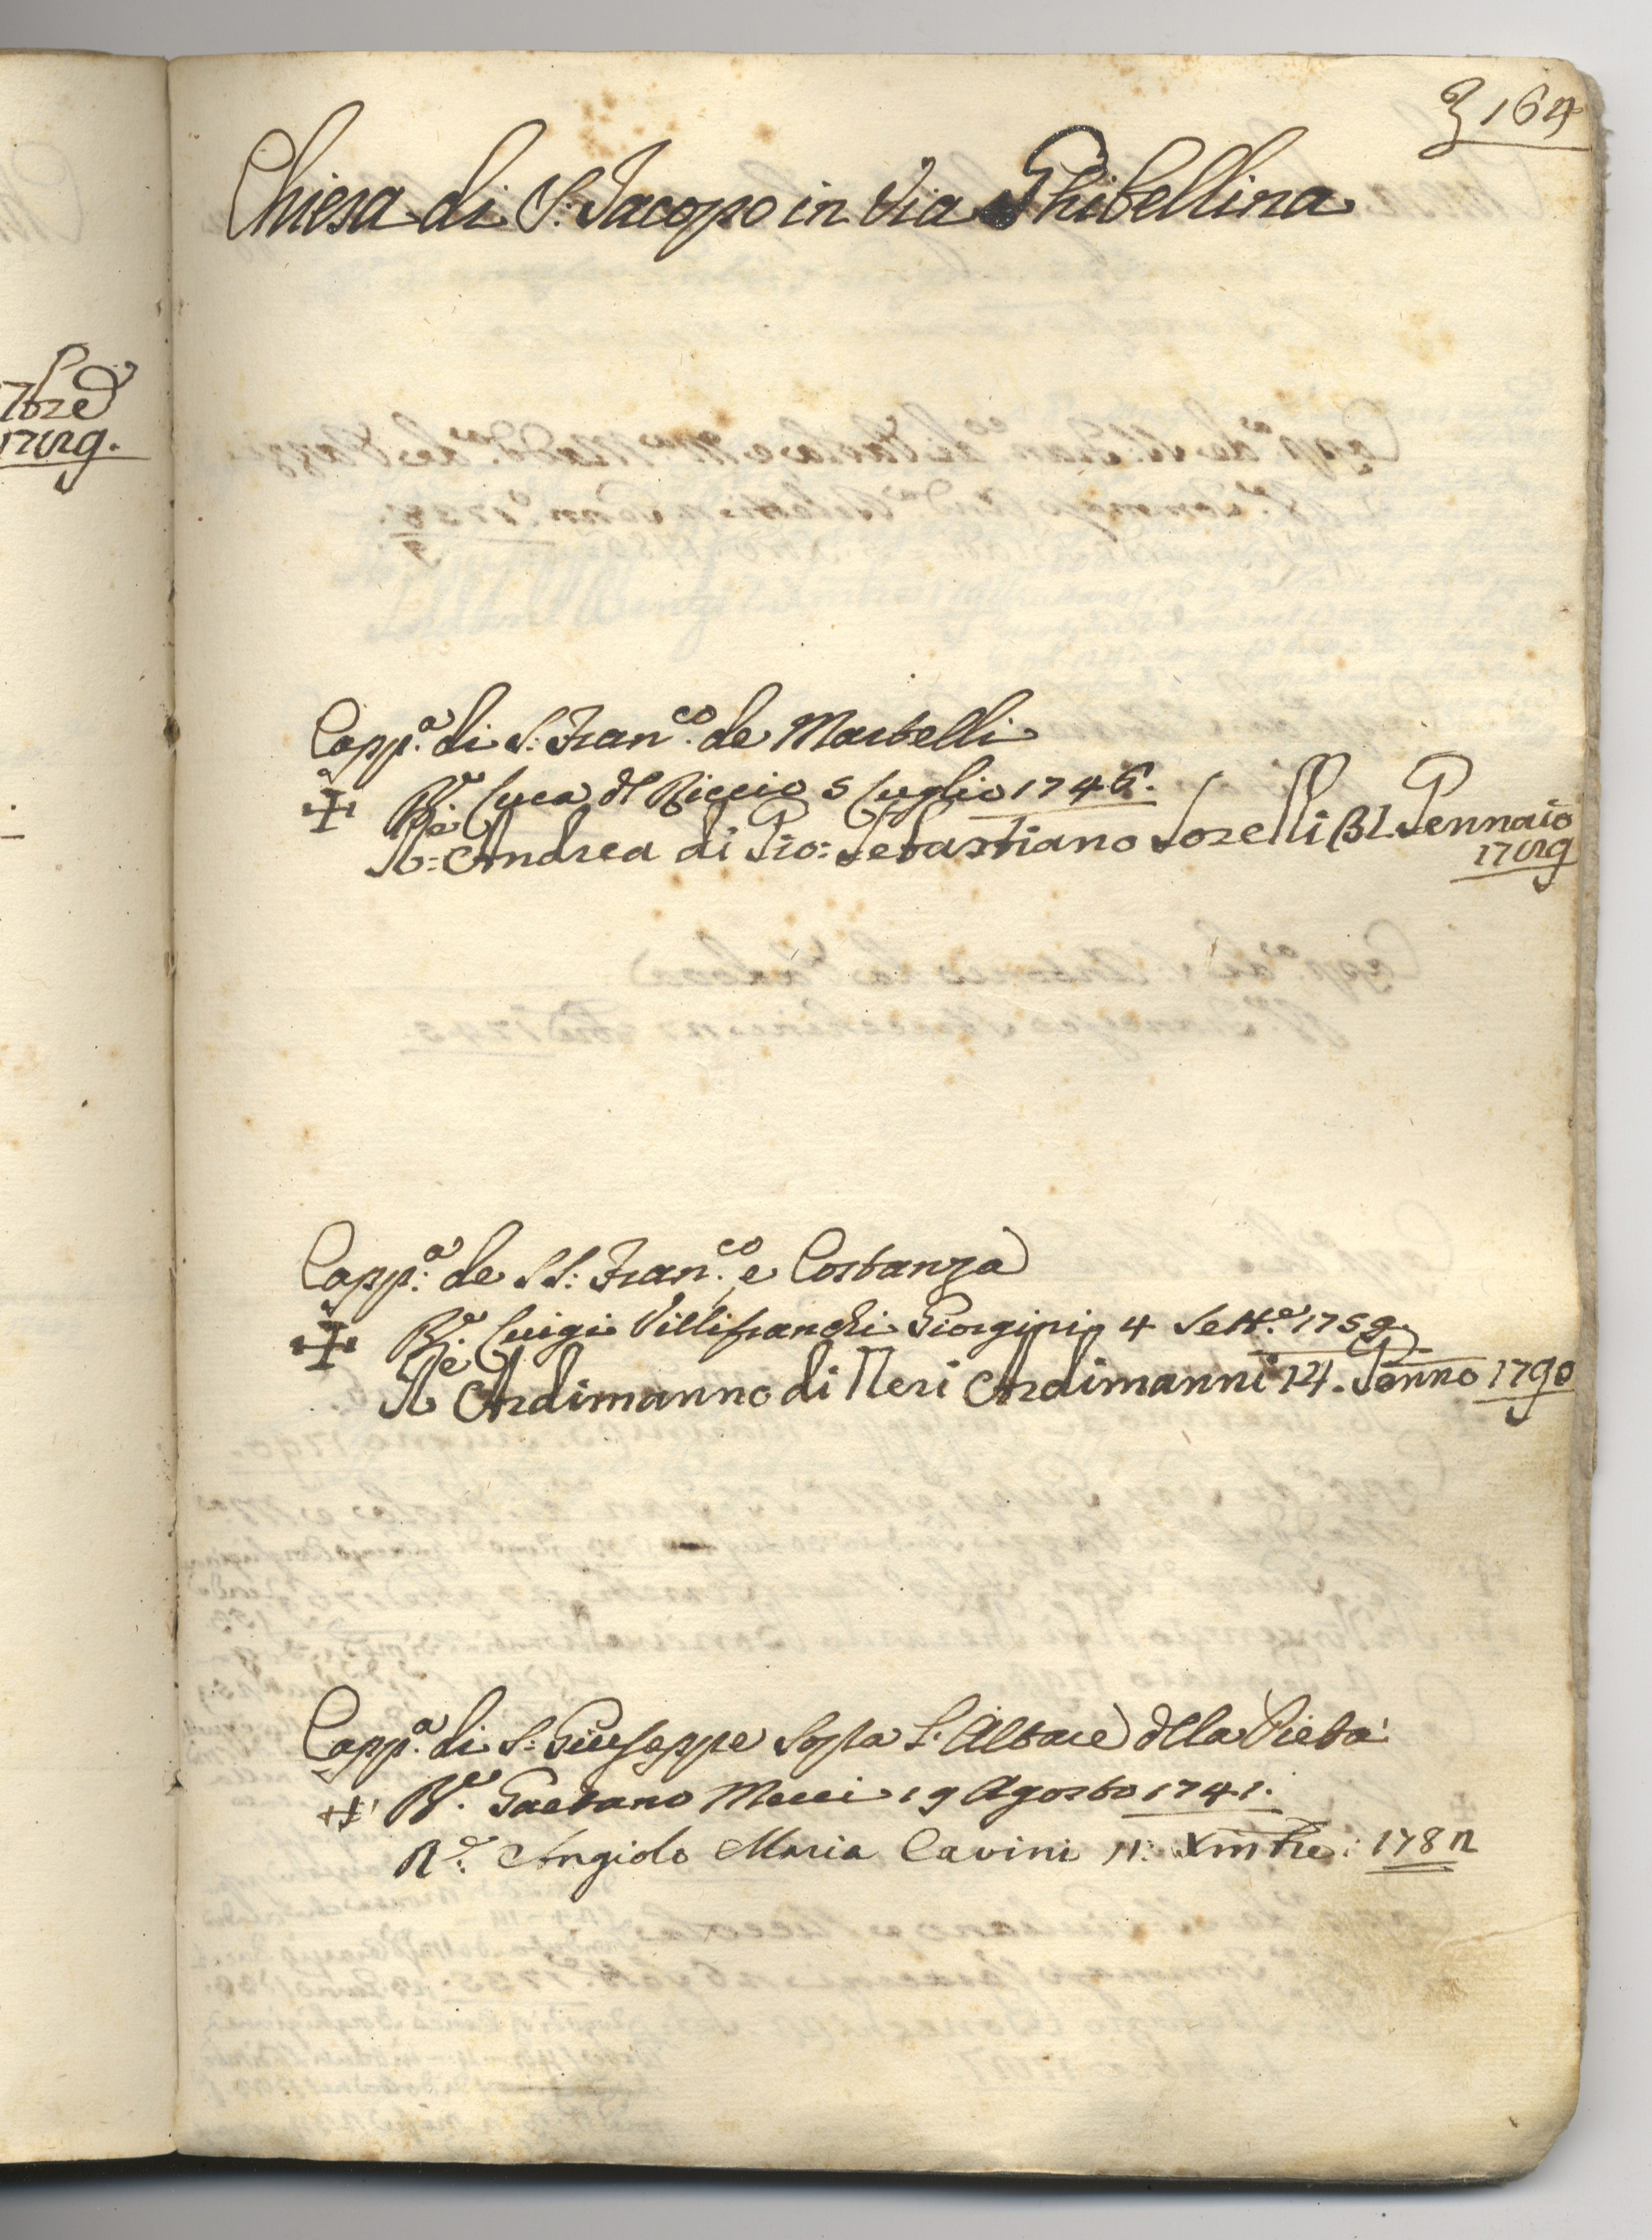 164
Chiesa di S: Jacopo in Via Ghibellina
Capp.a di S: Fran.co de Martelli
R.e Luca dl Riccio 5 Luglio 1746.
Re: Andrea di Gio: Sebastiano Sorelli 31. Gennaio
Capp.a de SS: Fran.co e Costanza
R.e Luigi Villifranchi Giorgini 4 Sett.e 1759
Re Ardimanno di Neri Ardimanni 14. Genno 1790
Capp.a di S: Giuseppe Sopra L'Altare della Pietà
R.e Gaetano Mecci 19 Agosto 1741.
R.e Angiolo Maria Cavini 11: Xmbre: 1782